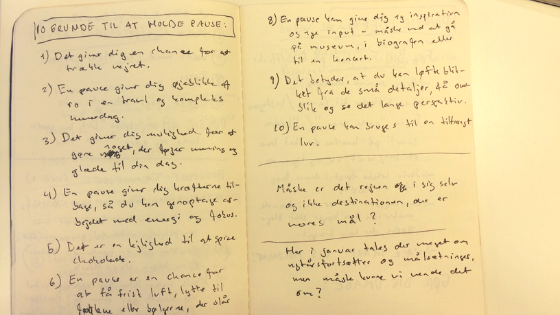 10 GRUNDE TIL AT HOLDE PAUSE:
1) Det giver dig en chance for at
trække vejret.
2) En pause giver dig øjeblikke af
ro i en travl og kompleks
hverdag.
3) Det giver dig mulighed for at
gøre noget, der føjer mening og
glæde til din dag.
4) En pause giver dig kræfterne til-
bage, så du kan genoptage ar-
bejdet med energi og fokus.
5) Det er en lejlighed til at spise
chokolade.
6) En pause er en chance for
at få frisk luft, lytte til
fuglene eller bølgerne, der slår
8) En pause kan give dig ny inspiration
og nye input - måske ved at gå
på museum, i biografen eller
til en koncert.
9) Det betyder, at du kan løfte blik-
ket fra de små detaljer, få over-
blik og se det lange perspektiv.
10) En pause kan bruges til en tiltrængt
lur.
Måske er det rejsen i sig selv
og ikke destinationen, der er
vores mål?
Her i januar tales der meget om
nytårsfortsætter og målsætninger,
men måske kunne vi vende det
om?